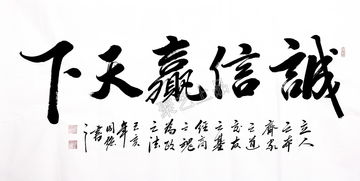 誠信贏天下
立人
之本
齊家
之道
交友
之基
經商
之魂
為政
之法
己亥
年
書